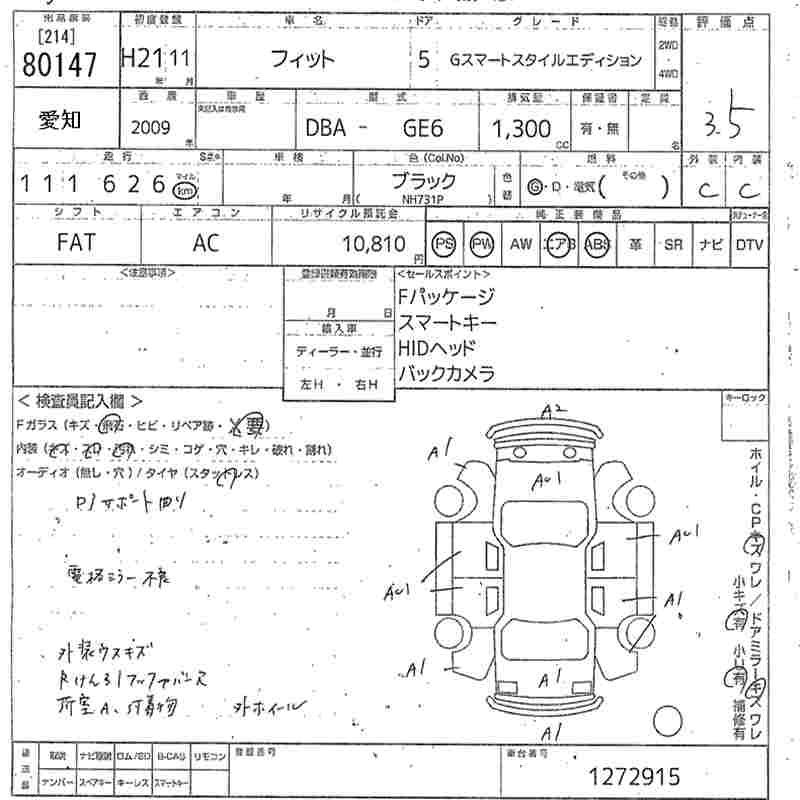 出品店舗 初度登録 車名 ドア グレード 駆動 評価点
[214]
80147 H21 11 フィット 5 Gスマートスタイルエディション 2WD 4WD
年 月
西暦 車歴 型式 排気量 保証書 定員
愛知 2009 年 DBA - GE6 1,300 CC 有・無 名 3.5
走行 車検 色(Col.No) 燃料 外装 内装
111626 マイル km 年 月 ブラック 色替 G・D・電気( その他 ) C C
( NH731P )
シフト エアコン リサイクル預託金 純正装備品
FAT AC 10,810 円 PS PW AW エアB ABS 革 SR ナビ DTV
<注意事項> 登録書類有効期限 <セールスポイント>
月 日
Fパッケージ
輸入車
スマートキー
ディーラー・並行
HIDヘッド
左H・右H
バックカメラ
<検査員記入欄> キーロック
Fガラス(キズ・飛石・ヒビ・リペア跡・X要)
内装(キズ・・・シミ・コゲ・穴・キレ・破れ・割れ)
オーディオ(無し・穴)/タイヤ(スタッドレス)
P/サポート曲り
電格ミラー不良
外装ウスキズ
外ホイール
A2
A1
AU1
AU1
AU1
A1
A1
A1
A1
ホイル・CPキズワレ/ドアミラーキズワレ
小キズ有 小U有 補修有
返送品 取説 ナビ取説 ロム/SD B-CAS リモコン 登録番号 車台番号
ナンバー スペアキー キーレス スマートキー 1272915